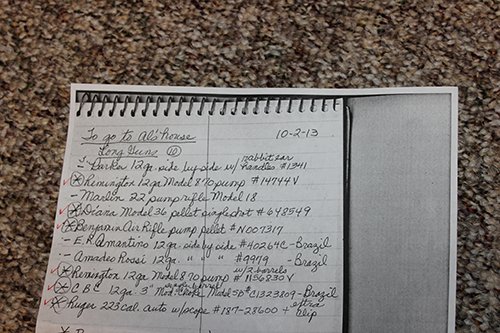 To go to Al's house 10-2-13
Long Guns (10)
- Parker 12 ga. side by side w/ rabbit ear handles #1341
* Remington 12 ga. Model 870 pump #14744V
- Marlin 22 pump rifle Model 18
* Diana Model 36 pellet singleshot #648549
* Benjamin Air Rifle pump pellet #N007317
- E.R. Amantino 12 ga. side by side #40264C - Brazil
- Amadeo Rossi 12 ga. " " " #9979 - Brazil
* Remington 12 ga. Model 870 pump #1156830V w/2 barrels
* C B C 12 ga. 3" Mod. Choke Model SB #C1323809 - Brazil
* Ruger 223 cal. auto w/scope #187-28600 + extra clip